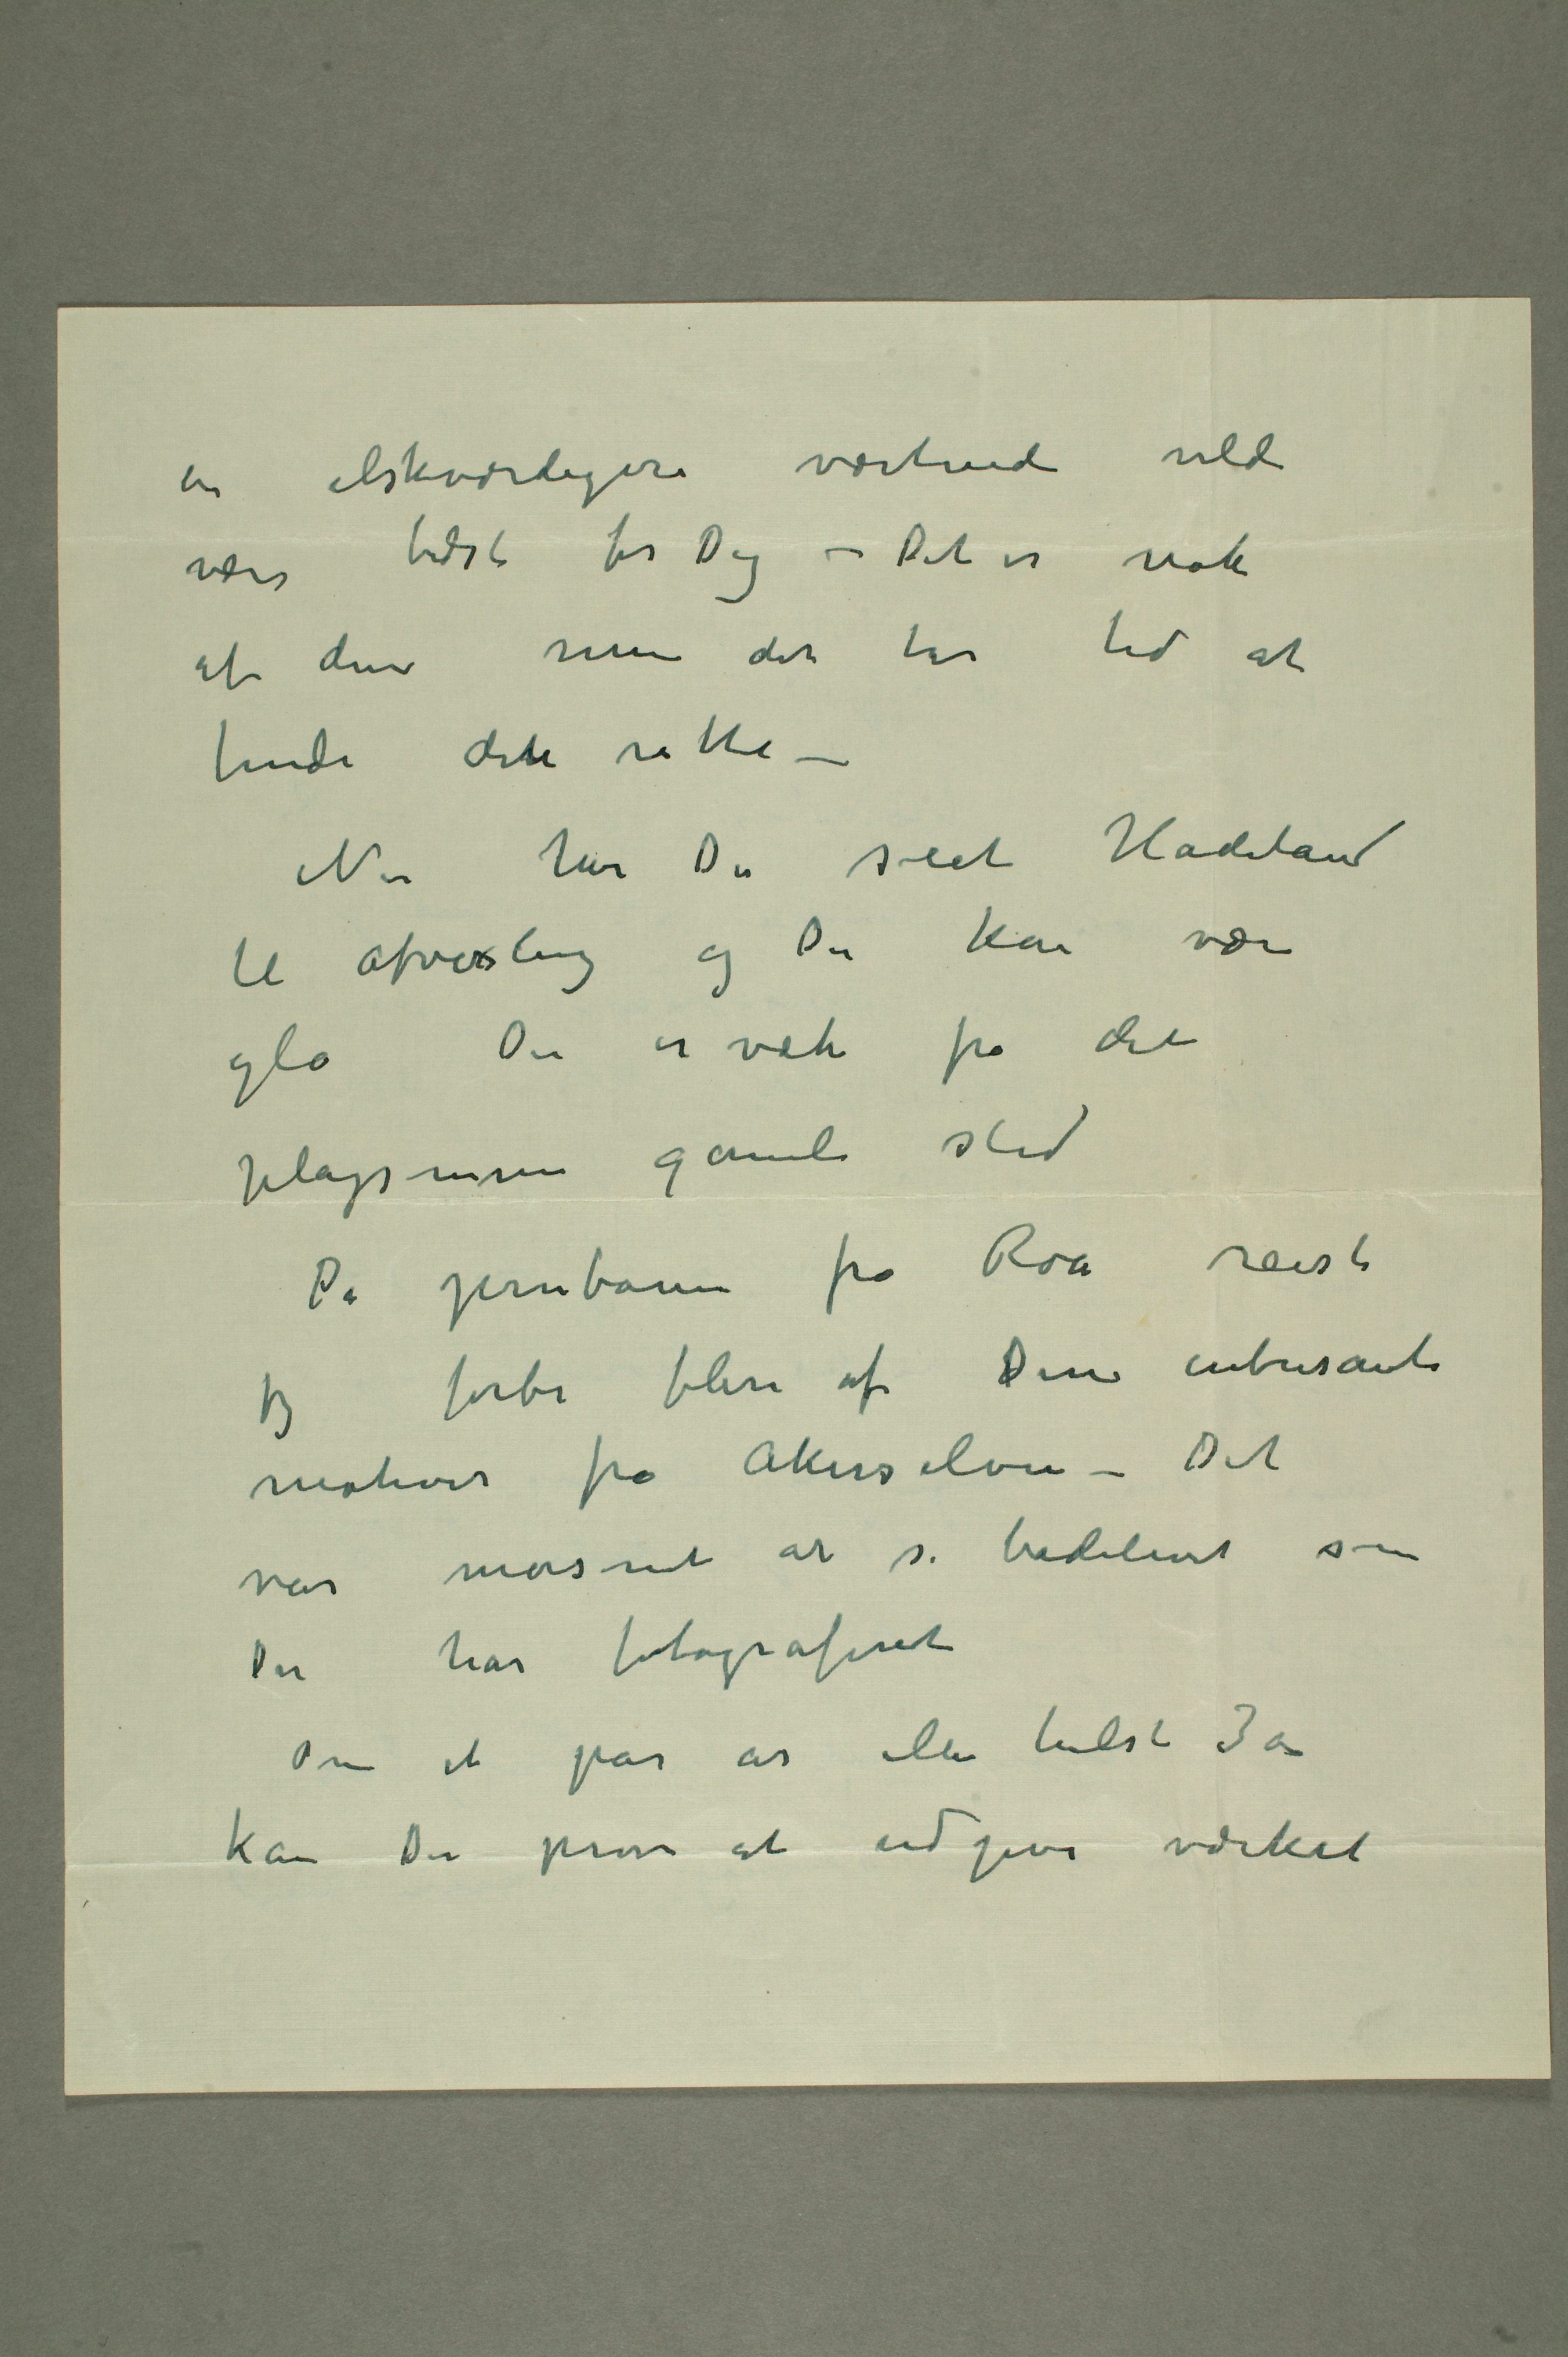 en elskværdigere værtinde vilde
være bedst for Dig – Det er nok
af dem men det tar tid at
finde dette rette –
Nu har Du seet Hadeland
til afvexling og Du kan være
gla Du er væk fra det
plagsomme gamle sted
På jernbanen fra Roa reiste
jeg forbi flere af Dine intresante
motiver fra Akerselven – Det
var morsomt at se badelivet som
Du har fotograferet
Om et par år eller helst 3 år
kan Du prøve at udgive værket